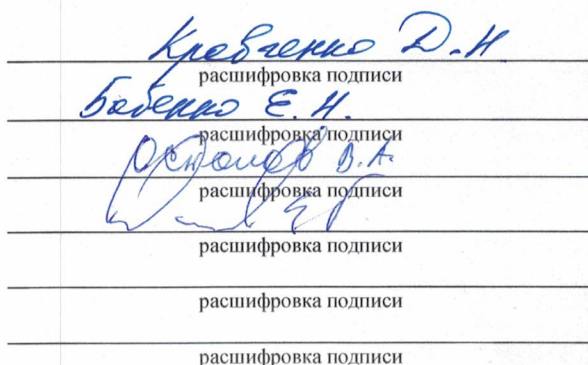 Кравченко Д.Н
расшифровка подписи
Бабенко Е.Н.
расшифровка подписи
В.А.
расшифровка подписи
расшифровка подписи
расшифровка подписи
расшифровка подписи